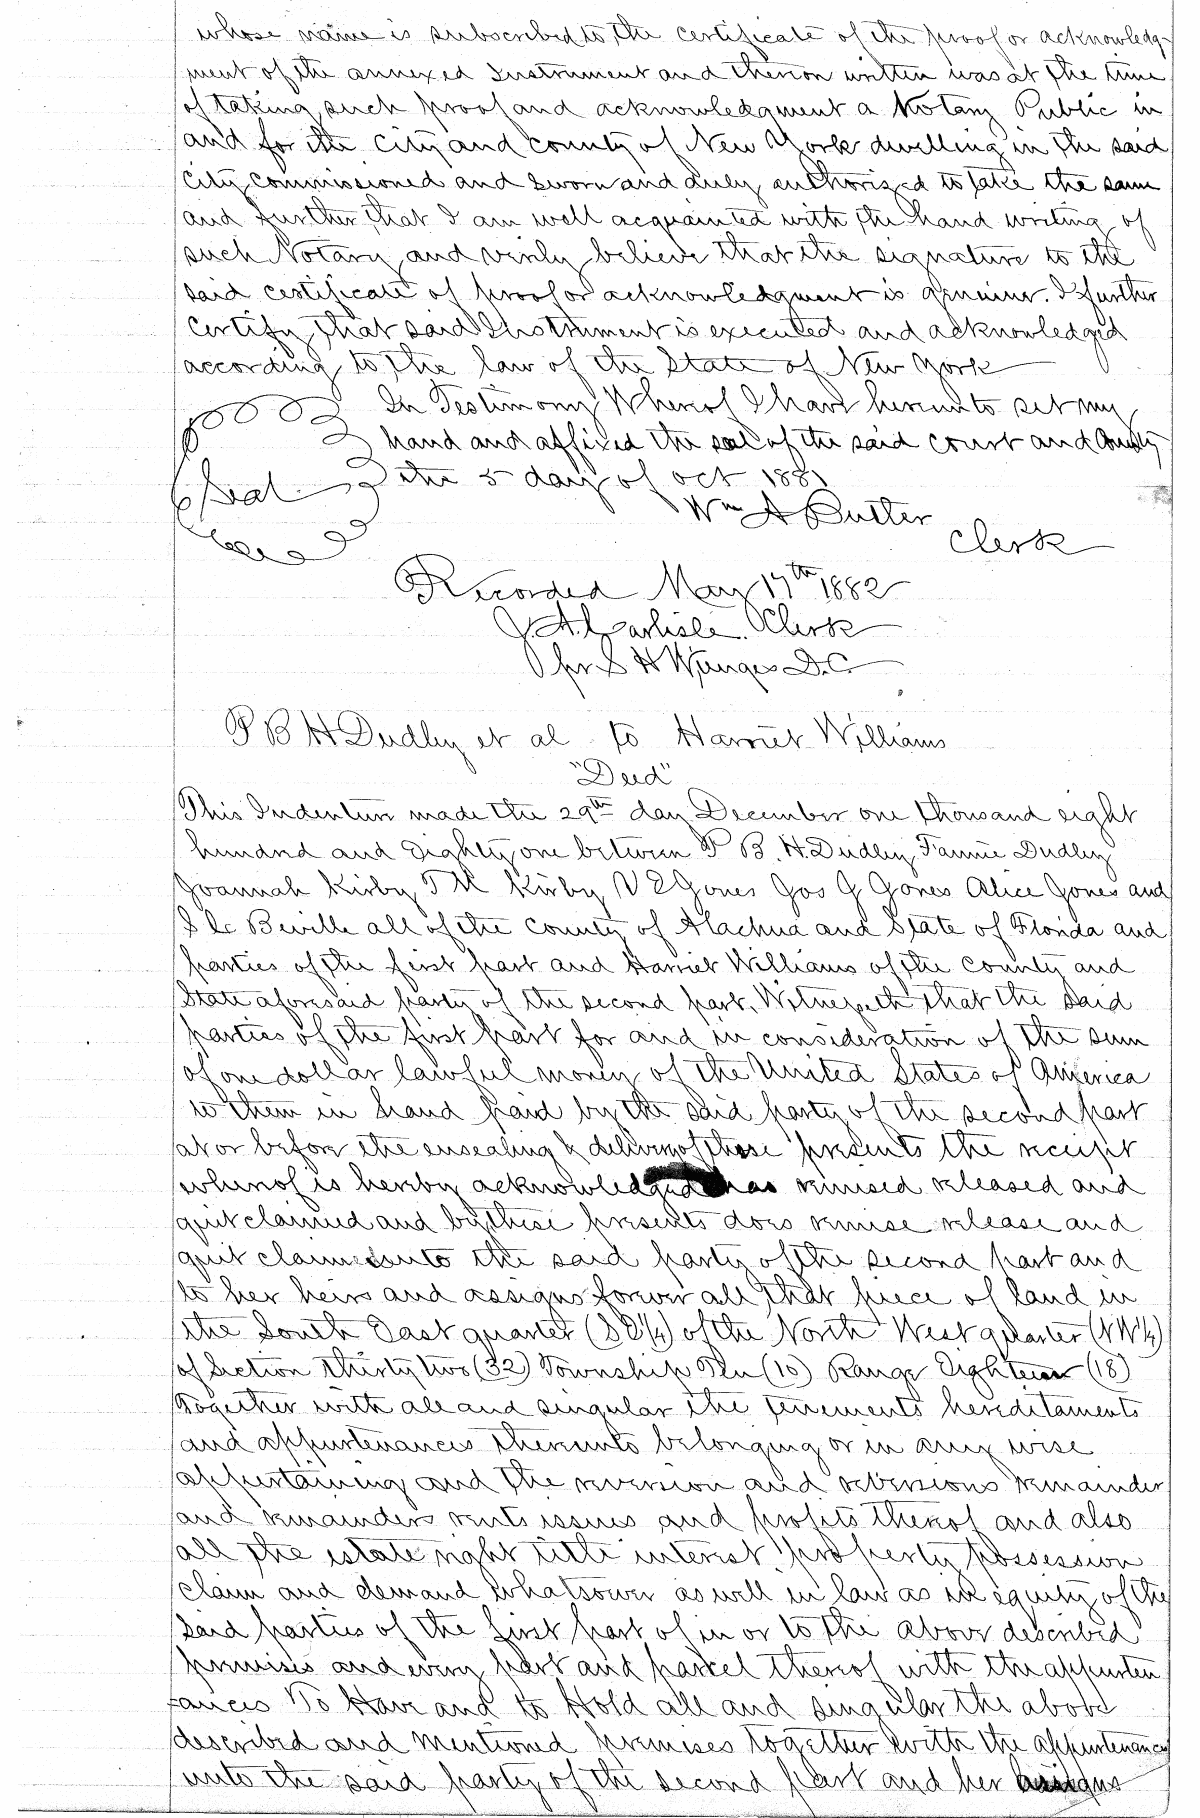 whose name is subscribed to the certificate of the proof or acknowledg-
ment of the annexed Instrument and thereon written was at the time
of taking such proof and acknowledgment a Notary Public in
and for the City and county of New York dwelling in the said
City commissioned and sworn and duly authorized to take the same
and further that I am well acquainted with the hand writing of
such Notary and verily believe that the signature to the
said certificate of proof or acknowledgment is genuine. I further
certify that said Instrument is executed and acknowledged
according to the law of the State of New York
In Testimony Whereof I have hereunto set my
hand and affixed the seal of the said court and County
Seal
the 5 day of oct 1881
Wm A Butler
Clerk
Recorded May 17th 1882
J. A. Carlisle. Clerk
pr S H Wienges D.C.
P B H Dudley et al to Harriet Williams
"Deed"
This Indenture made the 29th day December one thousand eight
hundred and Eighty one between P B. H. Dudley Fannie Dudley
Joannah Kirby T M Kirby V E Jones Jos J Jones Alice Jones and
S C Beville all of the County of Alachua and State of Florida and
parties of the first part and Harriet Williams of the County and
State aforesaid party of the second part, Witnesseth that the said
parties of the first part for and in consideration of the sum
of one dollar lawful money of the United States of America
to them in hand paid by the said party of the second part
at or before the ensealing & delivery of these presents the receipt
whereof is hereby acknowledged has remised released and
quit claimed and by these presents does remise release and
quit claim unto the said party of the second part and
to her heirs and assigns forever all that piece of land in
the South East quarter (SE¼) of the North West quarter (NW¼)
of Section Thirty two (32) Township Ten (10) Range Eighteen (18)
Together with all and singular the tenements hereditaments
and appurtenances thereunto belonging or in any wise
appertaining and the reversion and reversions remainder
and remainders rents issues and profits thereof and also
all the estate right title interest property possession
claim and demand whatsoever as well in law as in equity of the
said parties of the first part of in or to the above described
premises and every part and parcel thereof with the appurten
ances To Have and to Hold all and singular the above
described and mentioned premises together with the appurtenances
unto the said party of the second part and her assigns